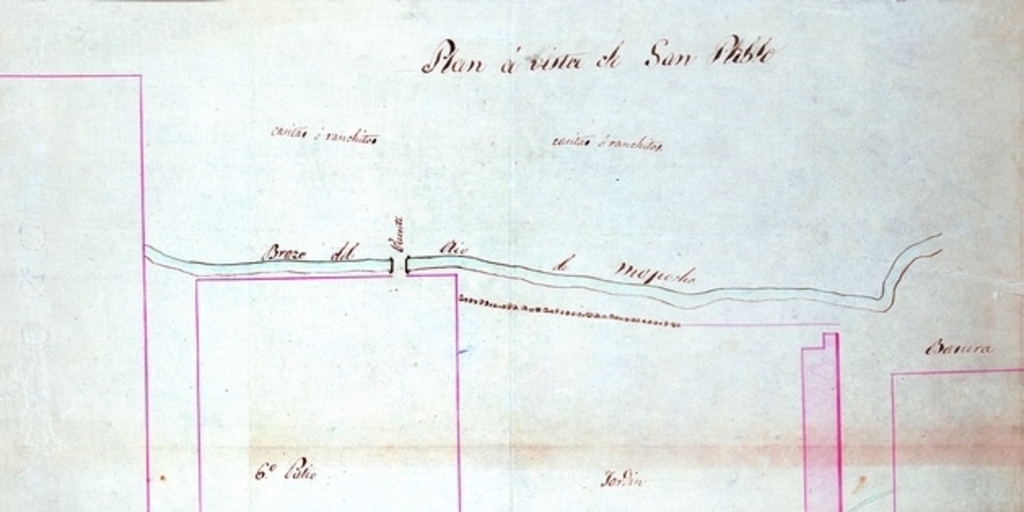 Plan á vista de San Pablo
casitas ó ranchitos
casitas ó ranchitos
Puente
Brazo del Rio de Mapocho
6.º Patio
Jardin